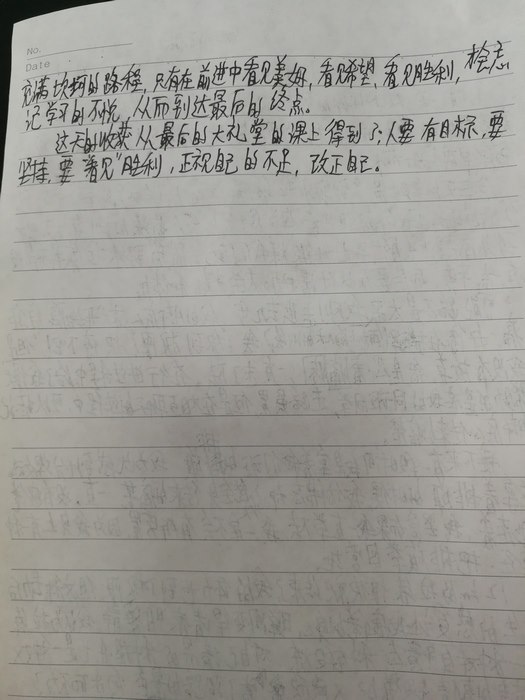 No.
Date
充满坎坷的路程，只有在前进中看见美好，看见希望，看见胜利，才会忘
记学习的不悦，从而到达最后的终点。
这天的收获从最后的大礼堂的课上得到了，人要有目标，要
坚持，要“看见”胜利，正视自己的不足，改正自己。